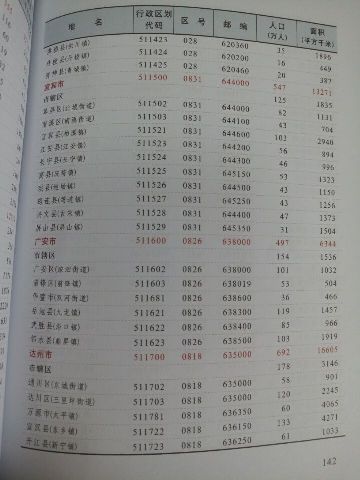 地 名 行政区划代码 区 号 邮 编 人口(万人) 面积(平方千米)
511423 028 620360 35 1896
511424 028 620200 16 449
511425 028 620460 20 387
宜宾市 511500 0831 644000 547 13271
市辖区 125 1835
511502 0831 644000 82 1131
511503 0831 644100 43 704
511521 0831 644600 102 2940
江安县(江安镇) 511523 0831 644200 56 894
长宁县(长宁镇) 511524 0831 644300 46 996
511525 0831 645150 53 1323
511526 0831 644500 43 1150
511527 0831 645250 43 1256
兴文县(古宋镇) 511528 0831 644400 47 1373
屏山县(屏山镇) 511529 0831 645350 31 1504
广安市 511600 0826 638000 497 6344
市辖区 154 1536
广安区 511602 0826 638000 101 1032
511603 0826 638019 53 504
华蓥市(双河街道) 511681 0826 638600 36 466
岳池县(九龙镇) 511621 0826 638300 119 1457
武胜县(沿口镇) 511622 0826 638400 85 966
邻水县(鼎屏镇) 511623 0826 638500 103 1900
达州市 511700 0818 635000 692 16605
市辖区 178 3146
通川区(东城街道) 511702 0818 635000 58 901
达川区(三里坪街道) 511703 0818 635000 120 2245
万源市(太平镇) 511781 0818 636350 60 4065
宣汉县(东乡镇) 511722 0818 636150 133 4271
开江县(新宁镇) 511723 0818 636250 61 1033
142